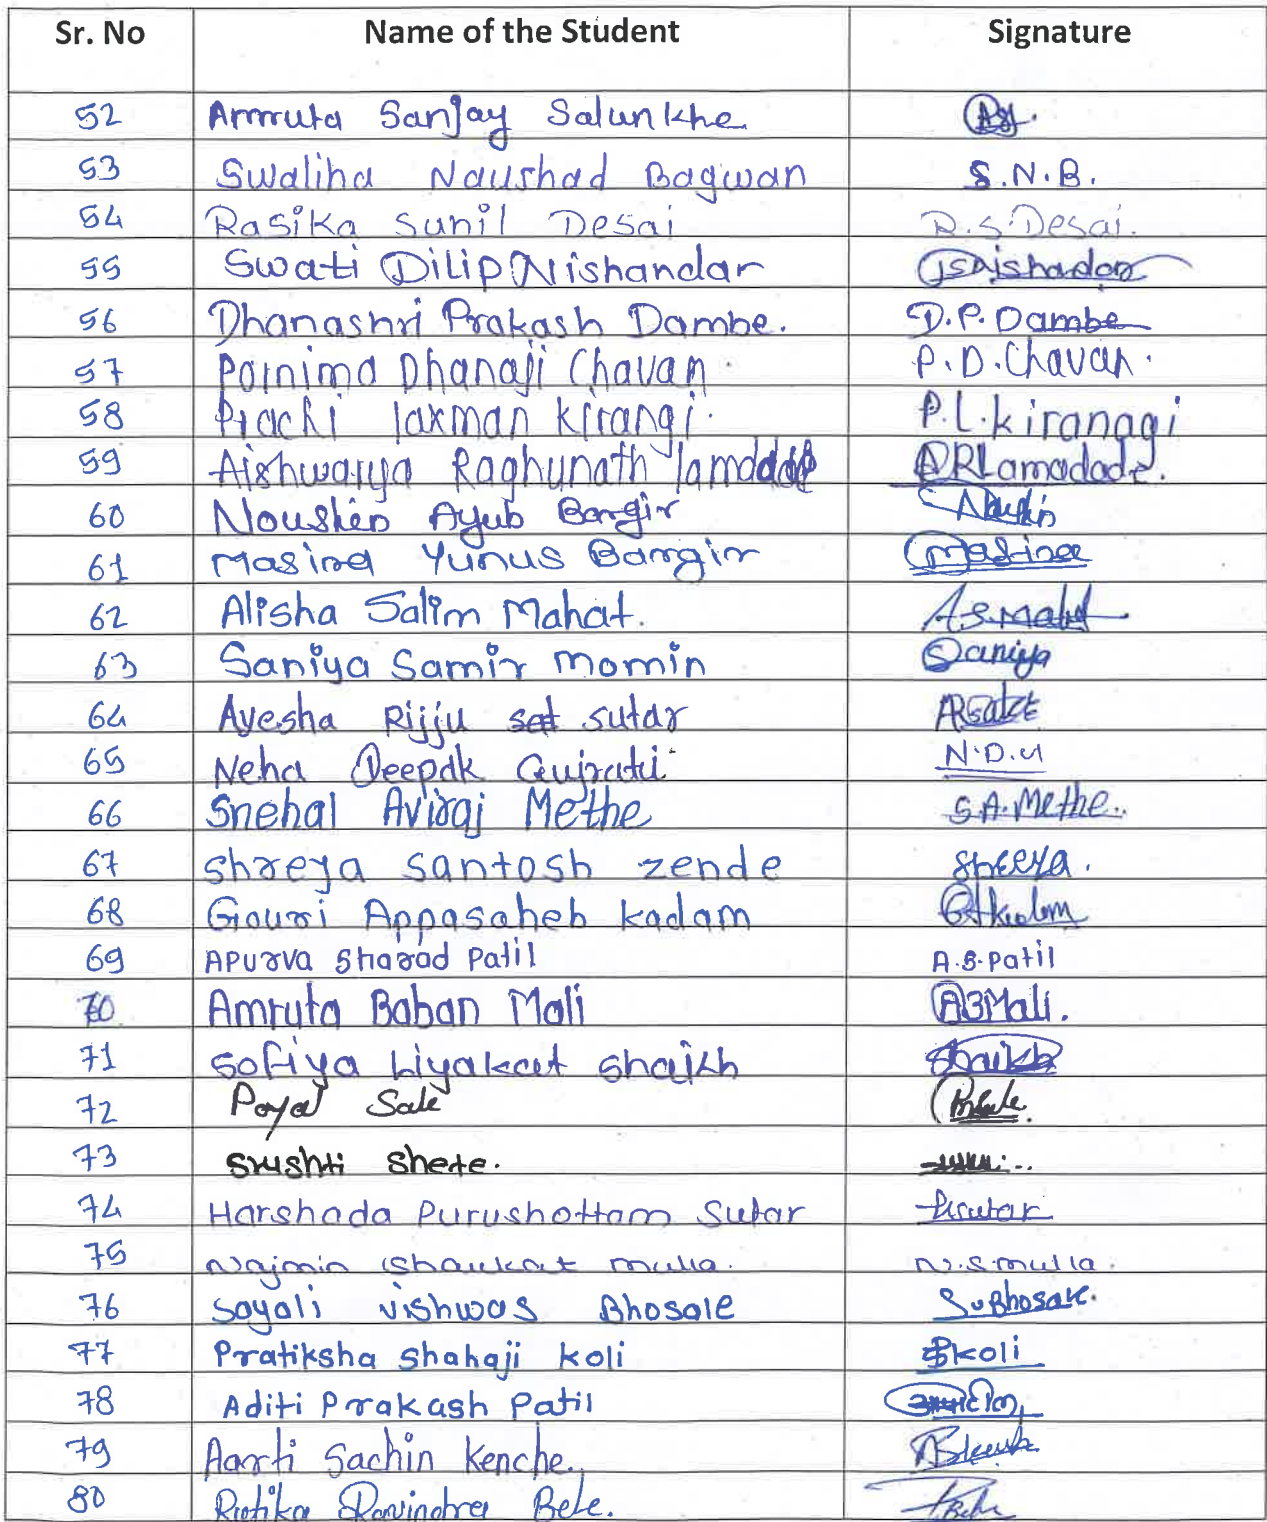 Sr. No Name of the Student Signature
52 Amruta Sanjay Salunkhe
53 Swaliha Naushad Bagwan S.N.B.
54 Rasika Sunil Desai R.S.Desai.
55 Swati Dilip Nishandar
56 Dhanashri Prakash Dambe. D.P.Dambe
57 Pornima Dhanaji Chavan. P.D.Chavan.
58 Prachi laxman kirangi. P.L.kiranagi
59 Aishwarya Raghunath lamdade ARLamadade.
60 Noushin Ayub Bargir
61 Masira Yunus Bargir Masira
62 Alisha Salim Mahat. A.S.Mahat
63 Saniya Samir Momin Saniya
64 Ayesha Rijju sutar
65 Neha Deepak Gujrati
66 Snehal Aviraj Methe S.A.Methe..
67 shreya santosh zende
68 Gouri Appasaheb kadam
69 Apurva Sharad Patil A.S.Patil
70 Amruta Baban Mali ABMali.
71 Sofiya Liyakat Shaikh Shaikh
72 Payal Sale
73 Srushti Shete.
74 Harshada Purushottam Sutar
75 Najmin Shaukat mulla. N.S.mulla.
76 Sayali vishwas Bhosale
77 Pratiksha Shahaji koli Pkoli
78 Aditi Prakash Patil
79 Aarti Sachin Kenche.
80 Rutika Ravindra Bele.